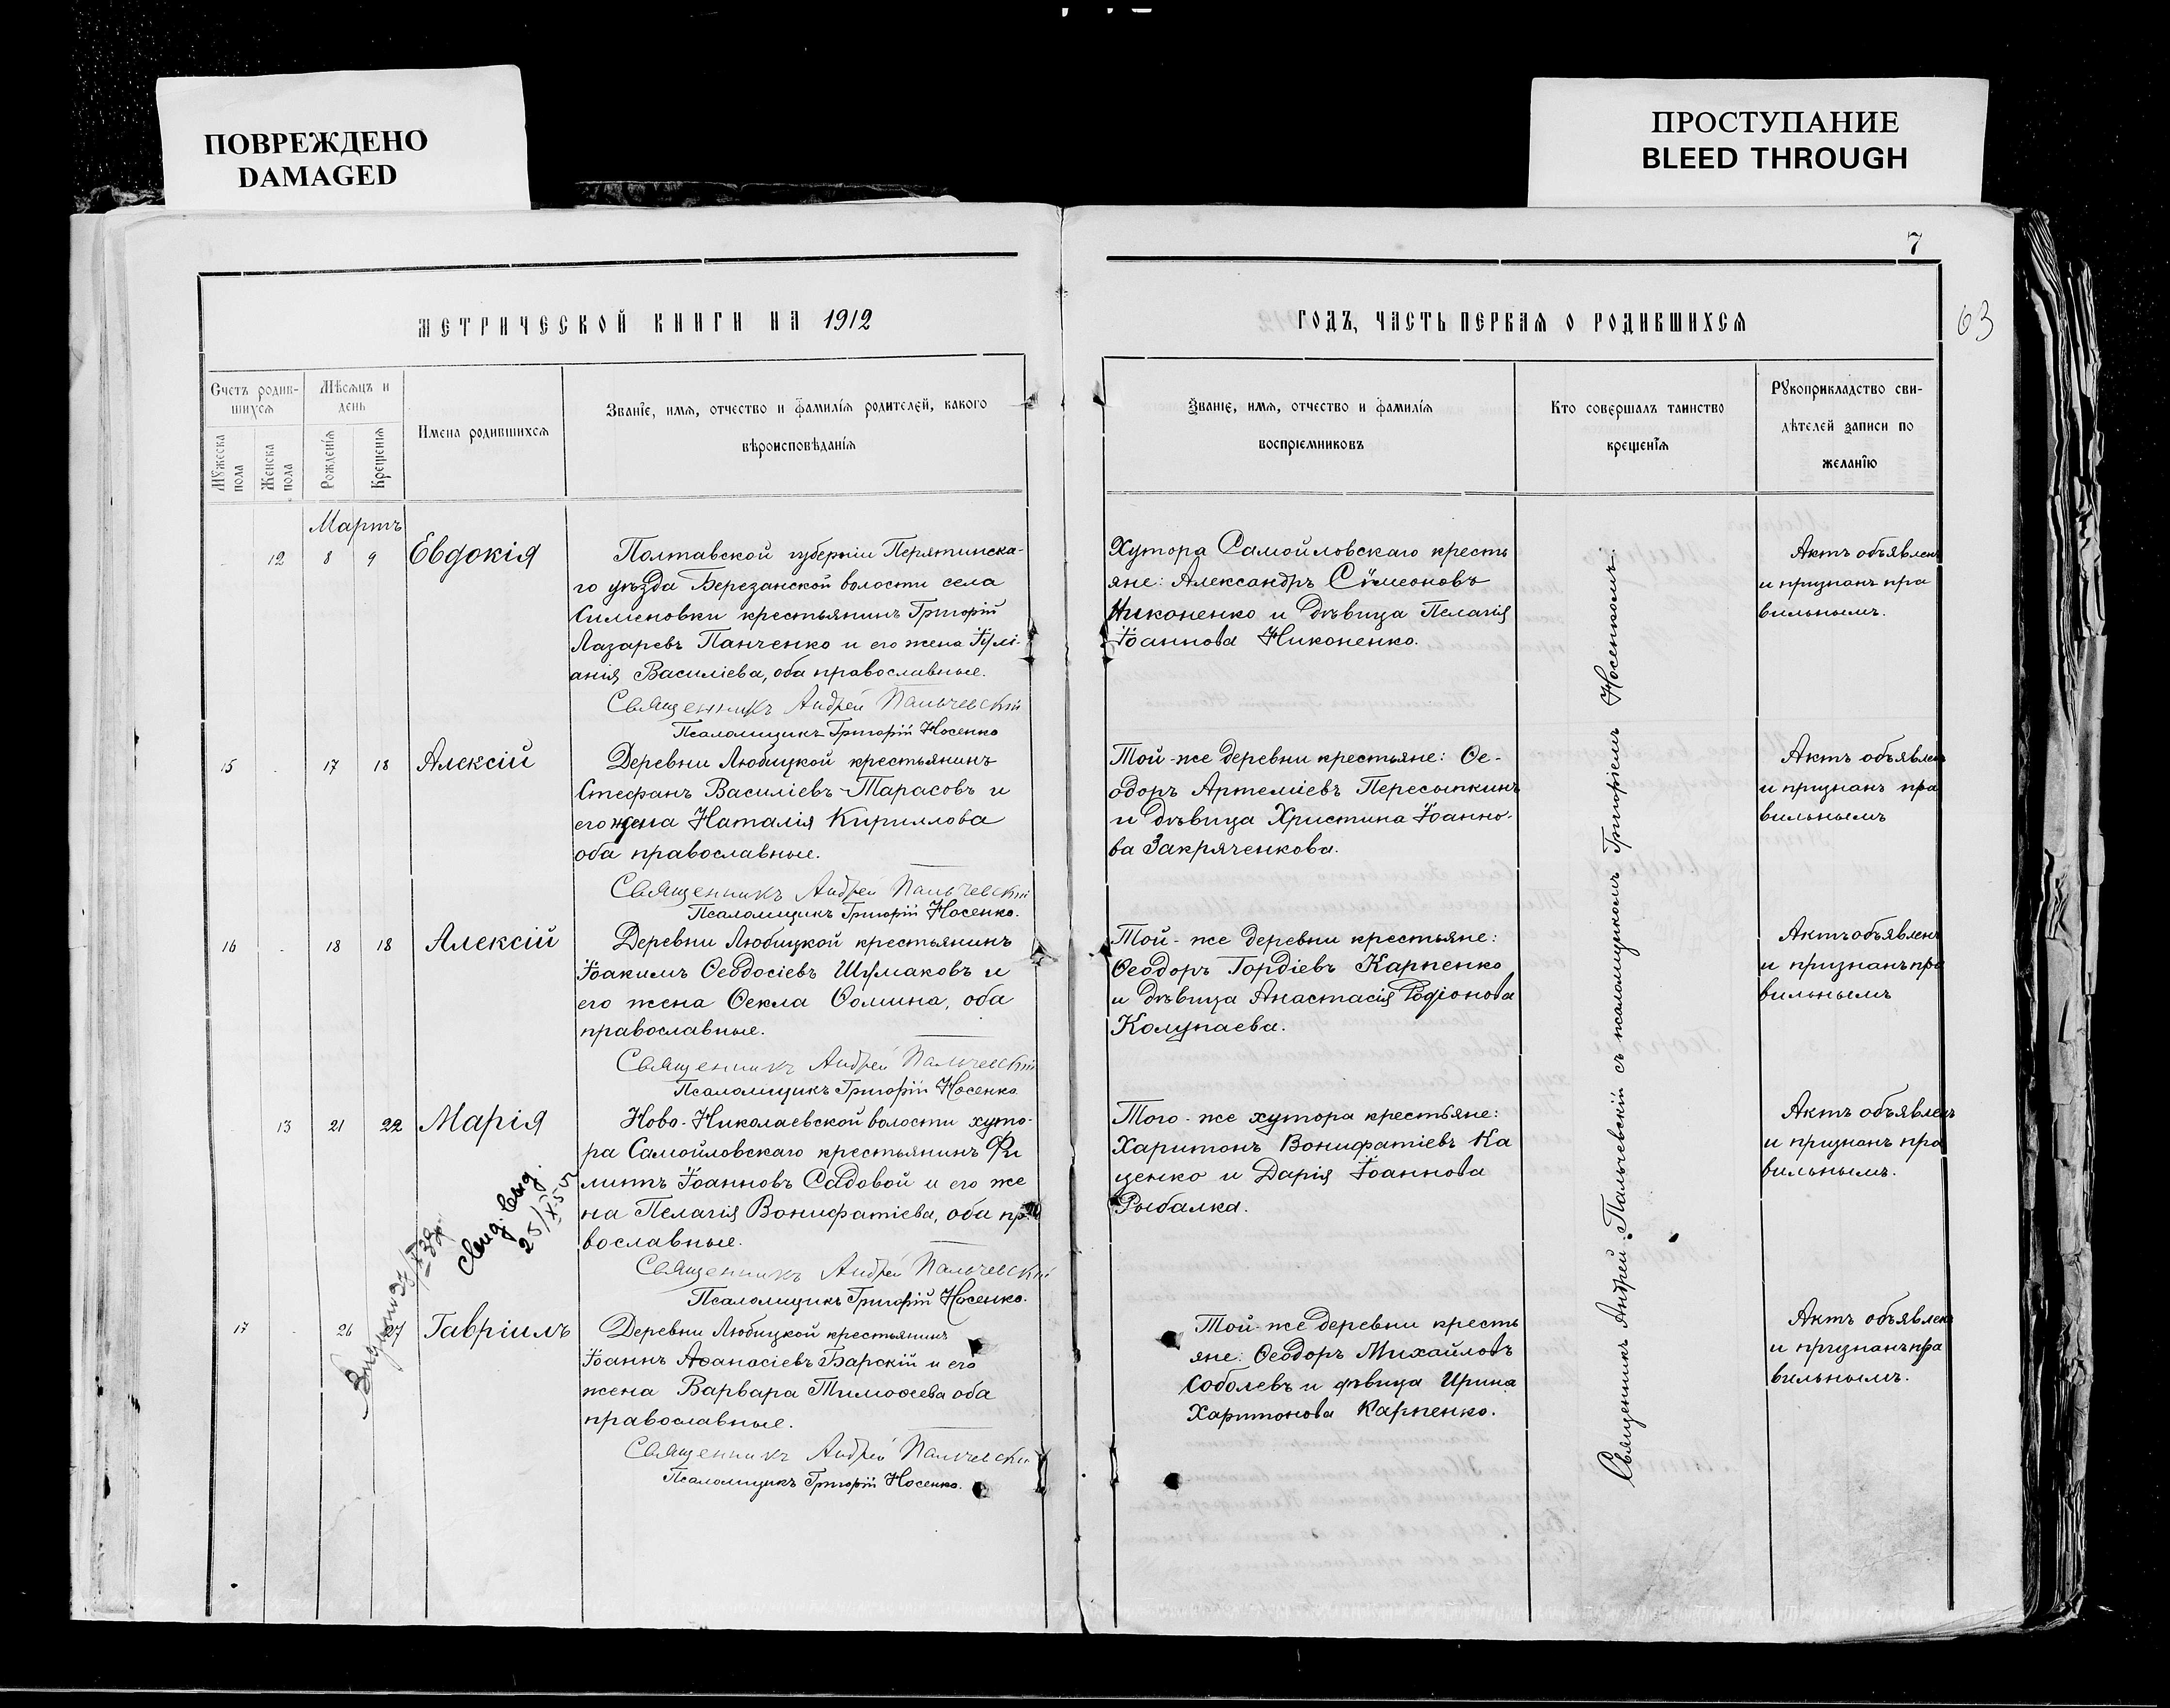 ПОВРЕЖДЕНО
DAMAGED
ПРОСТУПАНИЕ
BLEED THROUGH
7
63
МЕТРИЧЕСКОЙ КНИГИ НА 1912
Счетъ родив-
шихся
Мѣсяцъ и
день
Мужеска
пола
Женска
пола
Рожденія
Крещенія
Имена родившихся
Званіе, имя, отчество и фамилія родителей, какого
вѣроисповѣданія
Мартъ
12 8 9 Евдокія
Полтавской губерніи Перятинска-
го уѣзда Березанской волости села
Сименовки крестьянинъ Григорій
Лазаревъ Панченко и его жена Іулі-
анія Василіева, оба православные.
Священникъ Андрей Пальчевскій
Псаломщикъ Григорій Носенко
15 17 18 Алексій
Деревни Любицкой крестьянинъ
Стефанъ Василіевъ-Тарасовъ и
его жена Наталія Кириллова
оба православные.
Священникъ Андрей Пальчевскій
Псаломщикъ Григорій Носенко.
16 18 18 Алексій
Деревни Любицкой крестьянинъ
Іоакимъ Ѳеодосіевъ Шумаковъ и
его жена Ѳекла Ѳомина, оба
православные.
Священникъ Андрей Пальчевскій
Псаломщикъ Григорій Носенко
13 21 22 Марія
Ново-Николаевской волости хуто-
ра Самойловскаго крестьянинъ Фи
липъ Іоанновъ Садовой и его же
на Пелагія Вонифатіева, оба пра
вославные.
Священникъ Андрей Пальчевскій
Псаломщикъ Григорій Носенко.
25/X 5
17 26 27 Гавріилъ
Деревни Любицкой крестьянинъ
Іоаннъ Аѳанасіевъ Барскій и его
жена Варвара Тимоѳеева оба
православные.
Священникъ Андрей Пальчевскій
Псаломщикъ Григорій Носенко.
ГОДЪ, ЧАСТЬ ПЕРВАЯ О РОДИВШИХСЯ
Званіе, имя, отчество и фамилія
воспріемниковъ
Кто совершалъ таинство
крещенія
Рукоприкладство сви-
дѣтелей записи по
желанію
Хутора Самойловскаго кресть
яне: Александръ Сѷмеоновъ
Никоненко и дѣвица Пелагія
Іоаннова Никоненко.
Актъ объявленъ
и признанъ пра
вильнымъ.
Той-же деревни крестьяне: Ѳе-
одоръ Артеміевъ Пересыпкинъ
и дѣвица Христина Іоанно-
ва Закряченкова.
Актъ объявленъ
и признанъ пра
вильнымъ
Той-же деревни крестьяне:
Ѳеодоръ Гордіевъ Карпенко
и дѣвица Анастасія Родіонова
Колупаева.
Актъ объявленъ
и признанъ пра
вильнымъ
Того-же хутора крестьяне:
Харитонъ Вонифатіевъ Ка
ценко и Дарія Іоаннова
Рыбалка.
Актъ объявленъ
и признанъ пра
вильнымъ.
Той-же деревни кресть
яне: Ѳеодоръ Михайловъ
Соболевъ и дѣвица Ирина
Харитонова Карпенко.
Актъ объявленъ
и признанъ пра
вильнымъ.
Священникъ Андрей Пальчевскій съ псаломщикомъ Григоріемъ Носенкомъ.